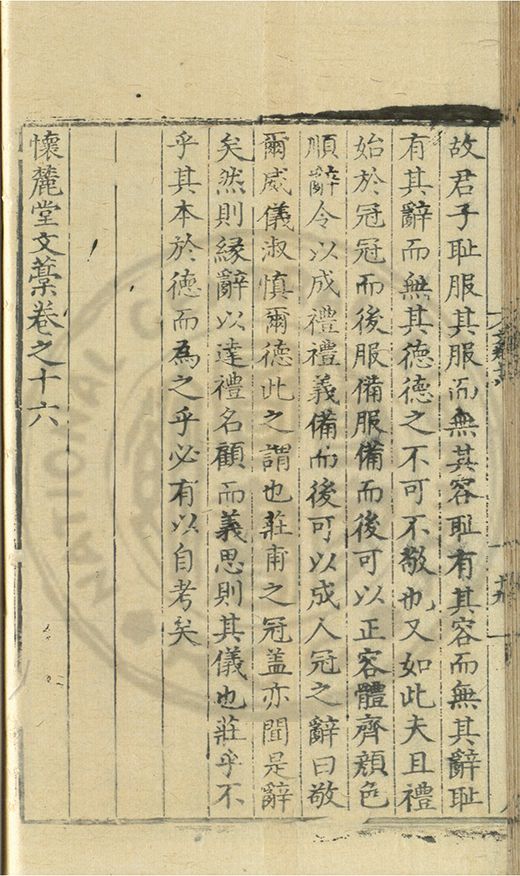 故君子耻服其服而無其容耻有其容而無其辭耻
有其辭而無其徳徳之不可不敬也又如此夫且禮
始於冠冠而後服備服備而後可以正容體齊顔色
順令以成禮禮義備而後可以成人冠之辭曰敬
爾威儀淑慎爾徳此之謂也莊甫之冠盖亦聞是辭
矣然則縁辭以達禮名顧而義思則其儀也莊乎不
乎其本於徳而為之乎必有以自考矣
懷麓堂文藁卷之十六